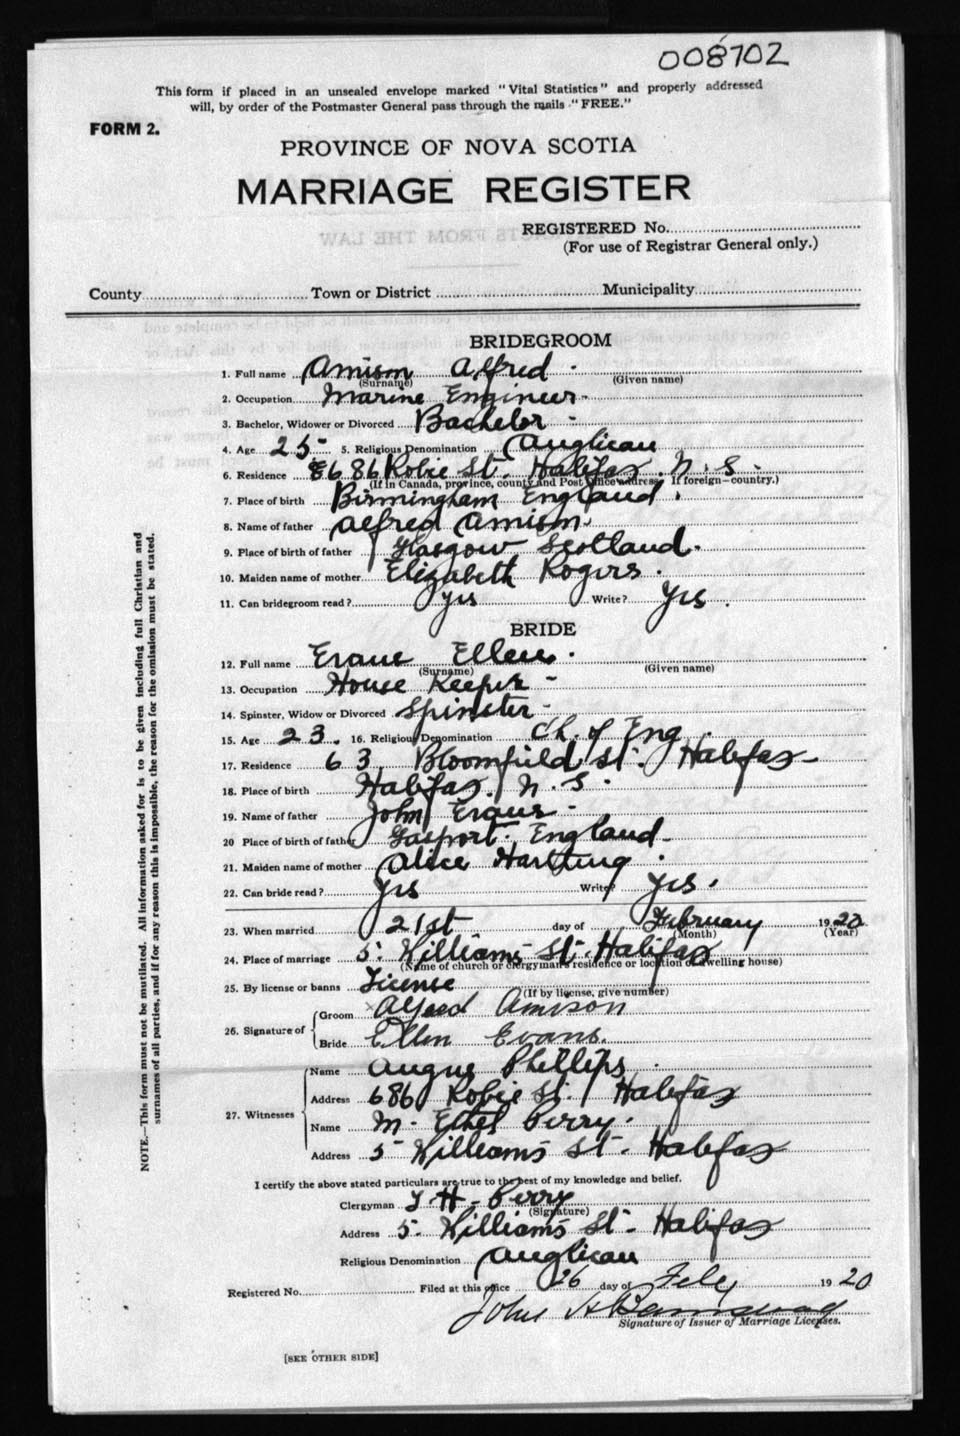 008702
This form if placed in an unsealed envelope marked "Vital Statistics" and properly addressed
will, by order of the Postmaster General pass through the mails "FREE."
FORM 2.
PROVINCE OF NOVA SCOTIA
MARRIAGE REGISTER
REGISTERED No.
(For use of Registrar General only.)
County Town or District Municipality
BRIDEGROOM
1. Full name Amison Alfred
(Surname) (Given name)
2. Occupation Marine Engineer
3. Bachelor, Widower or Divorced Bachelor
4. Age 25 5. Religious Denomination Anglican
6. Residence 686 Robie St. Halifax. N.S.
(If in Canada, province, county and Post Office address. If foreign—country.)
7. Place of birth Birmingham England.
8. Name of father Alfred Amison
9. Place of birth of father Glasgow Scotland.
10. Maiden name of mother Elizabeth Rogers.
11. Can bridegroom read? Yes Write? Yes.
BRIDE
12. Full name Evans Ellen.
(Surname) (Given name)
13. Occupation House Keeper
14. Spinster, Widow or Divorced Spinster
15. Age 23. 16. Religious Denomination Ch. of Eng.
17. Residence 63 Bloomfield St. Halifax
18. Place of birth Halifax. N.S.
19. Name of father John Evans
20 Place of birth of father Gosport. England
21. Maiden name of mother Alice
22. Can bride read? Yes Write? Yes.
23. When married 21st day of February 1920
(Month) (Year)
24. Place of marriage 5 Williams St. Halifax
(Name of church or clergyman's residence or location of dwelling house)
25. By license or banns License
(If by license, give number)
26. Signature of Groom Alfred Amison
Bride Ellen Evans.
27. Witnesses Name Angus Phillips
Address 686 Robie St. Halifax
Name M. Ethel Perry.
Address 5 Williams St. Halifax
I certify the above stated particulars are true to the best of my knowledge and belief.
Clergyman H. Perry
(Signature)
Address 5 Williams St. Halifax
Religious Denomination Anglican
Registered No. Filed at this office 26 day of Feby 1920
John A
Signature of Issuer of Marriage Licenses.
[SEE OTHER SIDE]
NOTE.—This form must not be mutilated. All information asked for is to be given including full Christian and
surnames of all parties, and if for any reason this is impossible, the reason for the omission must be stated.